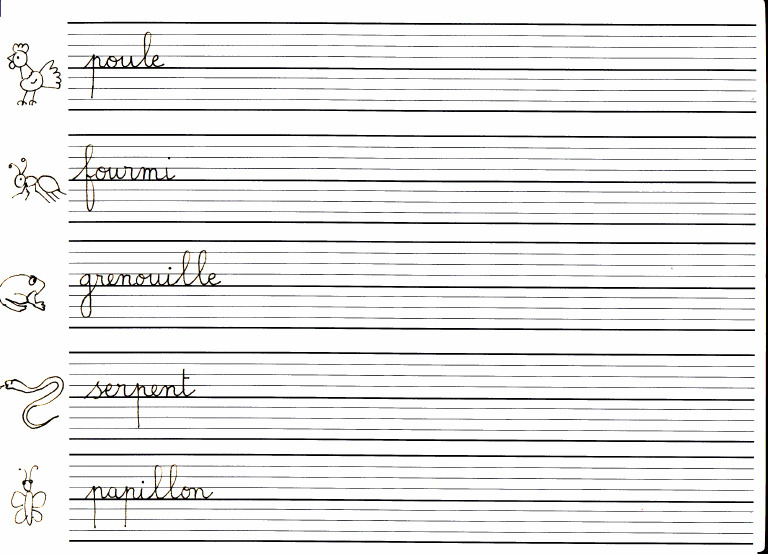 poule
fourmi
grenouille
serpent
papillon